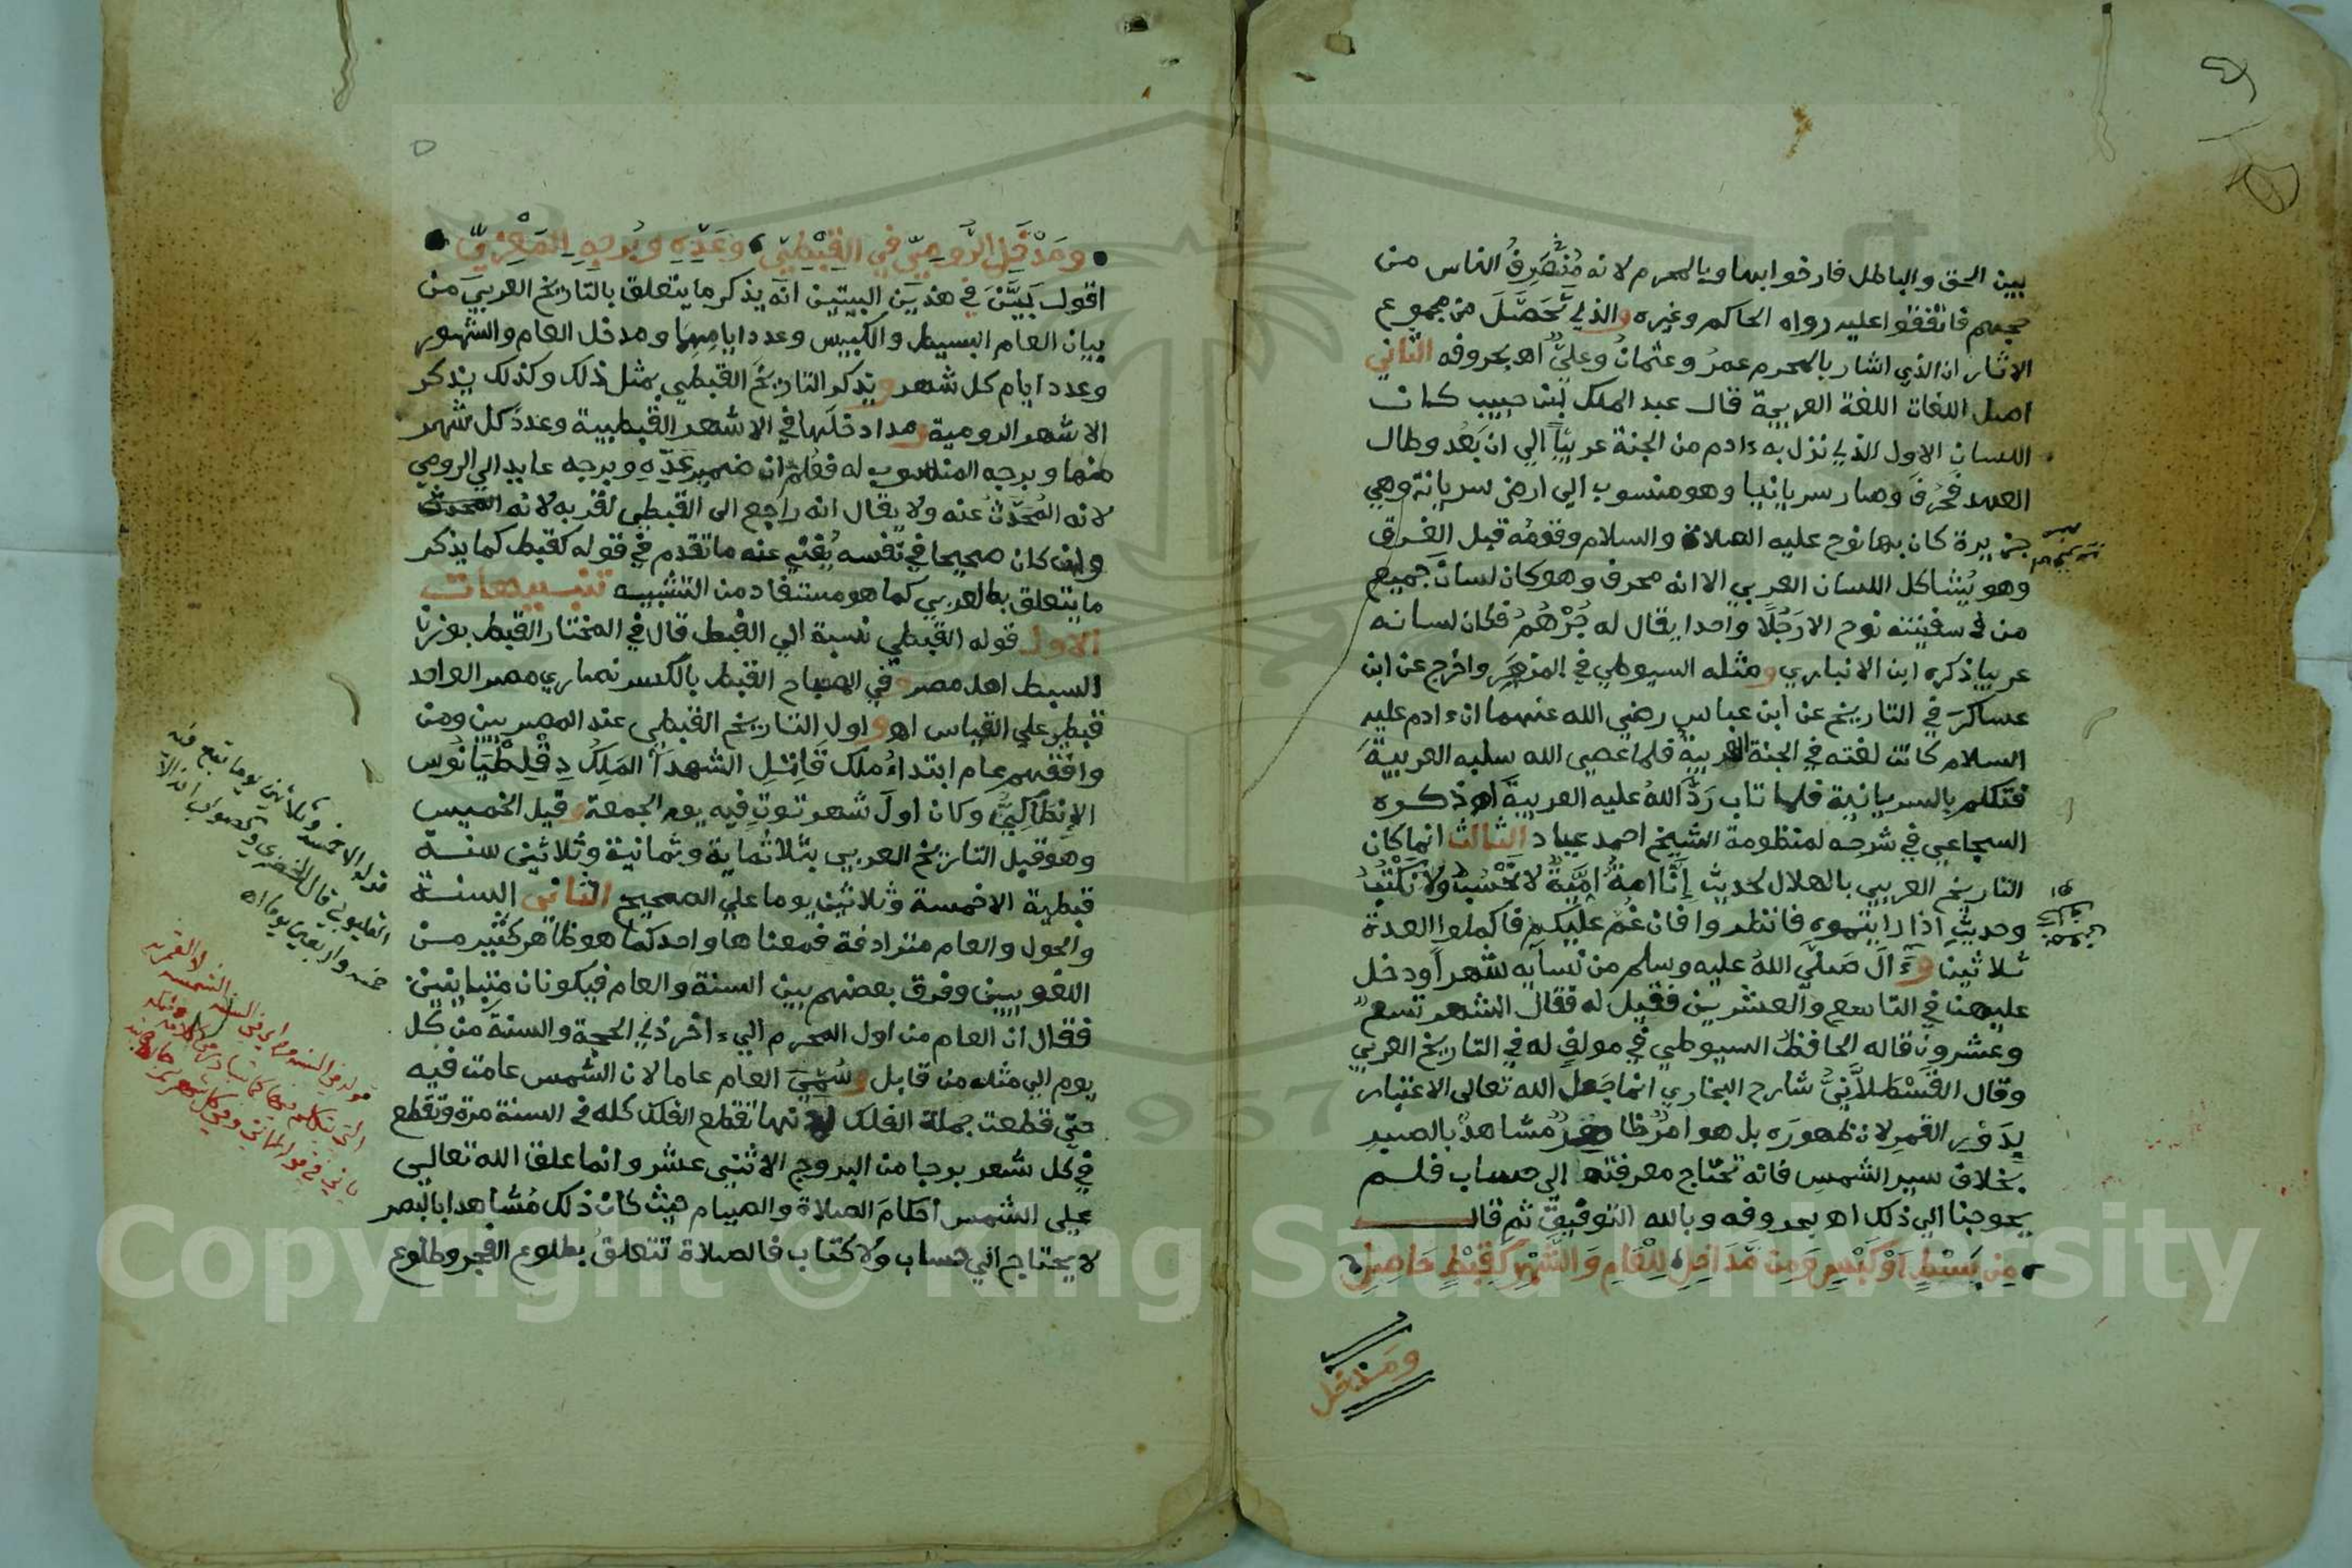 بين الحق والباطل فارخوا بها وبالمحرم لانه مُنْصَرِفُ الناس من
حجهم فاتفقوا عليه رواه الحاكم وغيره والذي تَحَصَّلَ من مجموع
الاثار ان الذي اشار بالمحرم عمرُ وعثمانُ وعليٌّ اه بحروفه الثاني
اصل اللغات اللغة العربية قال عبد الملك بْن حبيب كان
اللسان الاول الذي نزل به ءادم من الجنة عربيّاً الي ان بَعُد وطال
العهد فحُرِفَ وصار سريانيا وهو منسوب الي ارض سريانة وهي
جزيرة كان بها نوح عليه الصلاة والسلام وقومُه قبل الغرق
وهو يُشاكل اللسان العربي الا انه محرف وهو كان لسانَ جميع
من في سفينته نوح الا رَجُلًا واحدا يقال له جُرْهُمُ فكان لسانه
عربيا ذكره ابن الانباري ومثله السيوطي في المزهر واخرج عن ابن
عساكر في التاريخ عن ابن عباس رضي الله عنهما ان ءادم عليه
السلام كانت لغته في الجنة العربيةُ فلما عصى الله سلبه العربيةَ
فتكلم بالسريانية فلما تاب رَدَّ اللهُ عليه العربيةَ اه ذكره
السجاعي في شرحه لمنظومة الشيخ احمد عياد الثالث انما كان
التاريخ العربي بالهلال لحديث إِنَّا امةٌ أُمِّيَّةٌ لا نَحْسُبُ ولا نَكْتُبُ
وحديثِ اذا رايتموه فانظروا فان غُمَّ عليكم فاكملوا العدة
ثلاثينا وءَالَ صَلَّي اللهُ عليه وسلم من نسايه شهراً ودخل
عليهن في التاسع والعشرين فقيل له فقال الشهر تسعٌ
وعشرون قاله الحافظ السيوطي في مولفٍ له في التاريخ العربي
وقال القَسْطلاَّنِيُّ شارح البخاري انما جَعل الله تعالى الاعتبار
بِدَوْرِ القمرِ لان ظهورَه بل هو امرٌ ظاهرٌ مُشاهدٌ بالصبد
بخلاف سير الشمسِ فانه تحتاج معرفته الى حساب فلم
يحوجنا الي ذلك اه بحروفه وبالله التوفيق ثم قال
مِن بَسْطٍ اَوْ كَبْسٍ وَمِن مَّدَاخِلِ لِلْعَامِ وَالشَّهْرِ كَقِبْطٍ حَاصِلِ
ومدخل
ومَدْخَلِ الرُّومِيّ في القِبْطِيّ وعَدِّهِ وبُرجِهِ المَعْزِيّ
اقول بَيَّنَ في هذين البيتين انه يذكر ما يتعلق بالتاريخ العربي من
بيان العام البسيط والكبيس وعدد ايامِهِما ومدخل العام والشهور
وعدد ايام كل شهر ويذكر التاريخَ القبطي بمثل ذلك وكذلك يذكر
الاشهر الرومية ومداخلَها في الاشهر القبطيية وعددَ كل شهر
منها وبرجه المنسوب له فعُلم ان ضمير عَدِّهِ وبرجه عايد الي الرومي
لانه المُحَدَّثُ عنه ولا يقال انه راجع الى القبطي لقربه لانه المحدث
وان كان صحيحا في نفسه يُغْني عنه ما تقدم في قوله كقبط كما يذكر
ما يتعلق بالعربي كما هو مستفاد من التشبيه تنبيهات
الاول قوله القبطي نسبة الي القبط قال في المختار القبط بوزن
السبط اهل مصر وفي المصباح القبط بالكسر نصاري مصر الواحد
قبطي علي القياس اه واول التاريخ القبطي عند المصريين ومن
وافقهم عام ابتداءُ ملك قَاتِلِ الشهدآ المَلِكُ دِقْلِطْيَانُوس
الإنطَاكِيُّ وكان اولَ شهر توت فيه يوم الجمعة وقيل الخميس
وهو قبل التاريخ العربي بثلاثماية وثمانية وثلاثين سنة
قبطية الا خمسة وثلاثين يوما علي الصحيح الثاني السنة
والحول والعام مترادفة فمعناها واحد كما هو ظاهر كثير من
اللغويين وفرق بعضهم بين السنة والعام فيكونان متباينين
فقال ان العام من اول المحرم الي ءاخر ذي الحجة والسنةَ من كل
يوم الي مثله من قابل وسُمِّيَ العام عاما لان الشمس عامت فيه
حتي قطعت جملة الفلك لانها تقطع الفلك كله في السنة مرة وتقطع
في كل شهر برجا من البروج الاثني عشر وانما علق الله تعالى
على الشمس أحكامَ الصلاة والصيام حيث كان ذلك مُشاهدا بالبصر
لا يحتاج الى حساب ولا كتاب فالصلاة تتعلق بطلوع الفجر وطلوع
قوله الا خمسة وثلاثين يوما تبع فيه
القليوبي قال الخضري والصواب
خمسة واربعين يوما اه
Copyright © King Saud University
1957